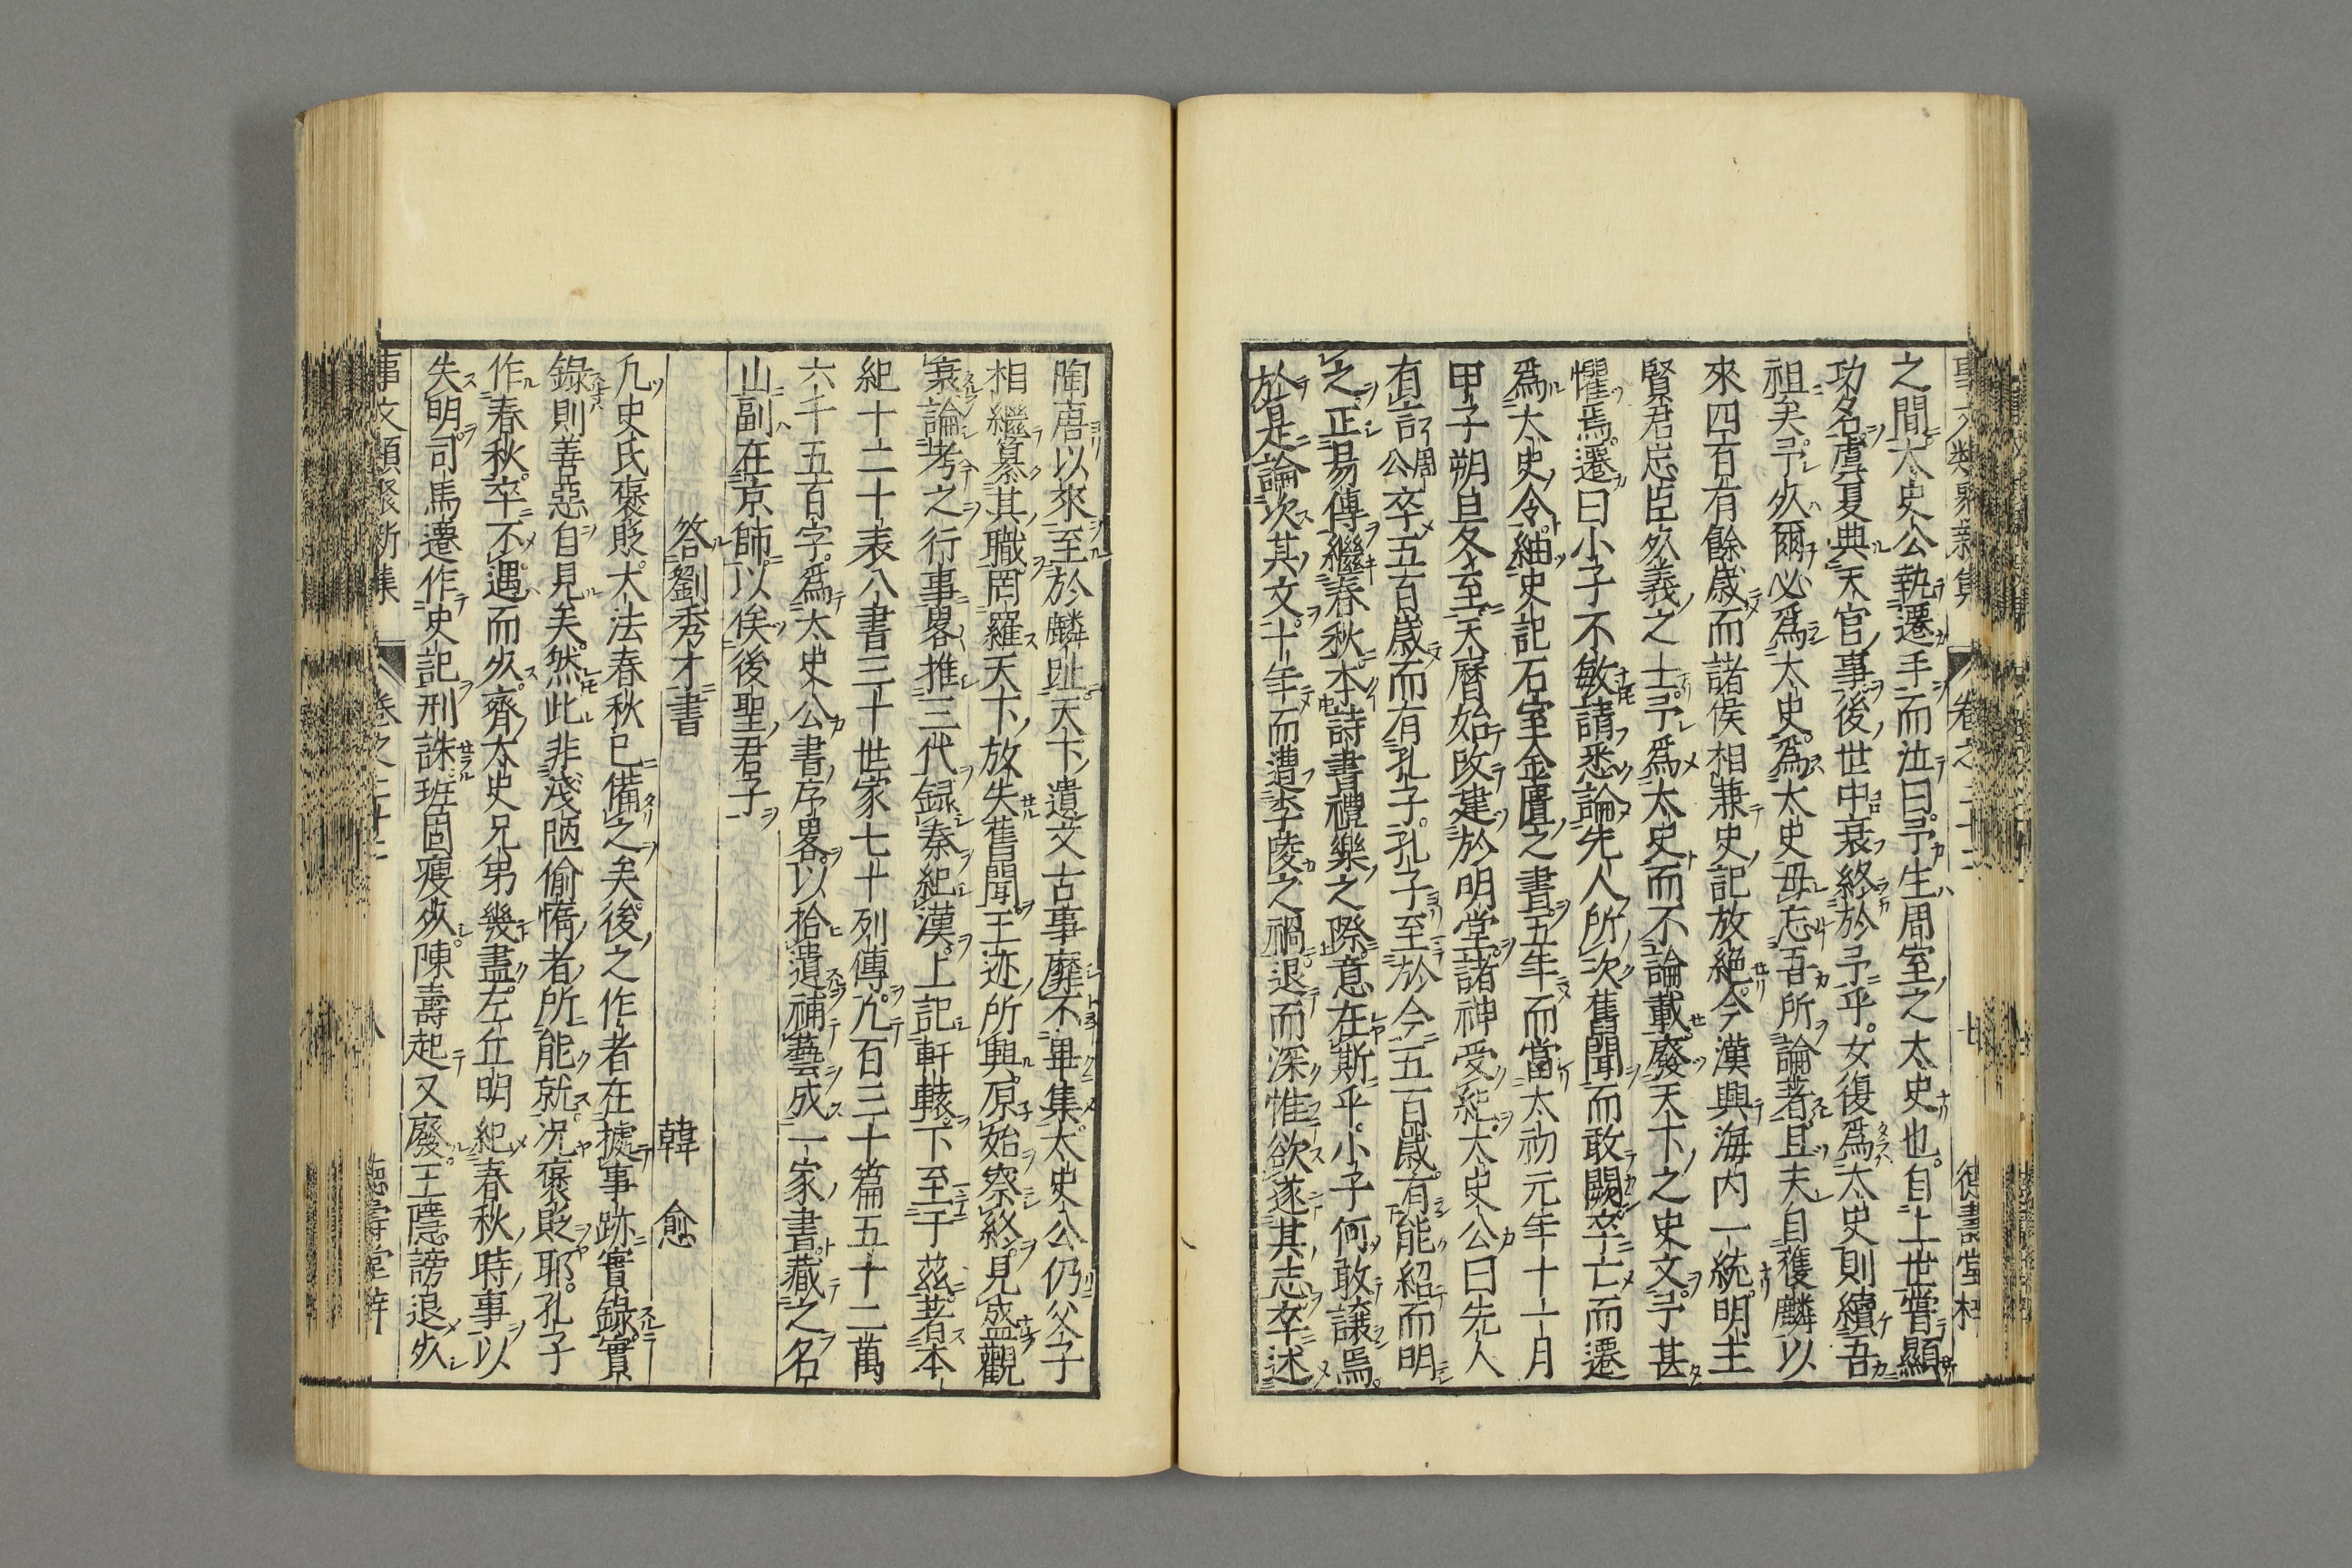 之間太史公執遷手而泣曰予生周室之太史也自上世嘗顯
功名虞夏典天官事後世中衰終於予乎女復爲太史則續吾
祖矣予死爾必爲太史爲太史毋忘吾所論著且夫自獲麟以
來四百有餘歲而諸侯相兼史記放絶今漢興海内一統明主
賢君忠臣死義之士予爲太史而不論載廢天下之史文予甚
懼焉遷曰小子不敏請悉論先人所次舊聞而敢闕卒亡而遷
爲太史令紬史記石室金匱之書五年而當太初元年十一月
甲子朔旦冬至天曆始改建於明堂諸神受紀太史公曰先人
有言周公卒五百歲而有孔子孔子至於今五百歲有能紹而明
之正易傳繼春秋本詩書禮樂之際意在斯乎小子何敢讓焉
於是論次其文十年而遭李陵之禍退而深惟欲遂其志卒述
陶唐以來至於麟趾天下遺文古事靡不畢集太史公仍父子
相繼纂其職罔羅天下放失舊聞王迹所興原始察終見盛觀
衰論考之行事畧推三代録秦紀漢上記軒轅下至于茲著本
紀十二十表八書三十世家七十列傳凡百三十篇五十二萬
六千五百字爲太史公書序畧以拾遺補藝成一家書藏之名
山副在京師以俟後聖君子
答劉秀才書 韓愈
凢史氏褒貶大法春秋已備之矣後之作者在據事跡實錄實
錄則善惡自見矣然此非淺陋偷惰者所能就況褒貶耶孔子
作春秋卒不遇而死齊太史兄弟幾盡左丘明紀春秋時事以
失明司馬遷作史記刑誅班固瘦死陳壽起又廢王隱謗退死
事文類聚新集 卷之二十二 八